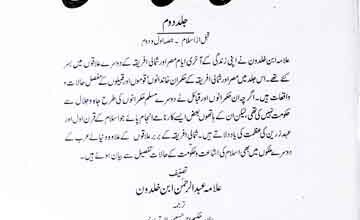 جلد دوم
قبل از اسلام ۔ حصہ اول و دوم
علامہ ابن خلدون نے اپنی زندگی کے آخری ایام مصر اور شمالی افریقہ کے دوسرے علاقوں میں بسر
کئے تھے۔ اس جلد میں مصر اور شمالی افریقہ کے حکمران خاندانوں، قوموں اور قبیلوں کے مفصل حالات و
واقعات ہیں۔ اگرچہ ان حکمرانوں اور قبائل نے دوسرے مسلم حکمرانوں کی طرح جاہ و جلال سے
حکومت نہیں کی تھی، لیکن ان کے ہاتھوں بعض ایسے کارنامے انجام پائے جو اسلام کے قرن اول اور
عہد زریں کی عظمت کی یاد دلاتے ہیں۔ شمالی افریقہ کے بربر علاقوں کے علاوہ دنیائے عرب کے
دوسرے ملکوں میں بھی اسلام کی اشاعت و حکومت کے حالات تفصیل سے بیان ہوئے ہیں۔
تصنیف
علامہ عبدالرحمٰن ابن خلدون
ترجمہ